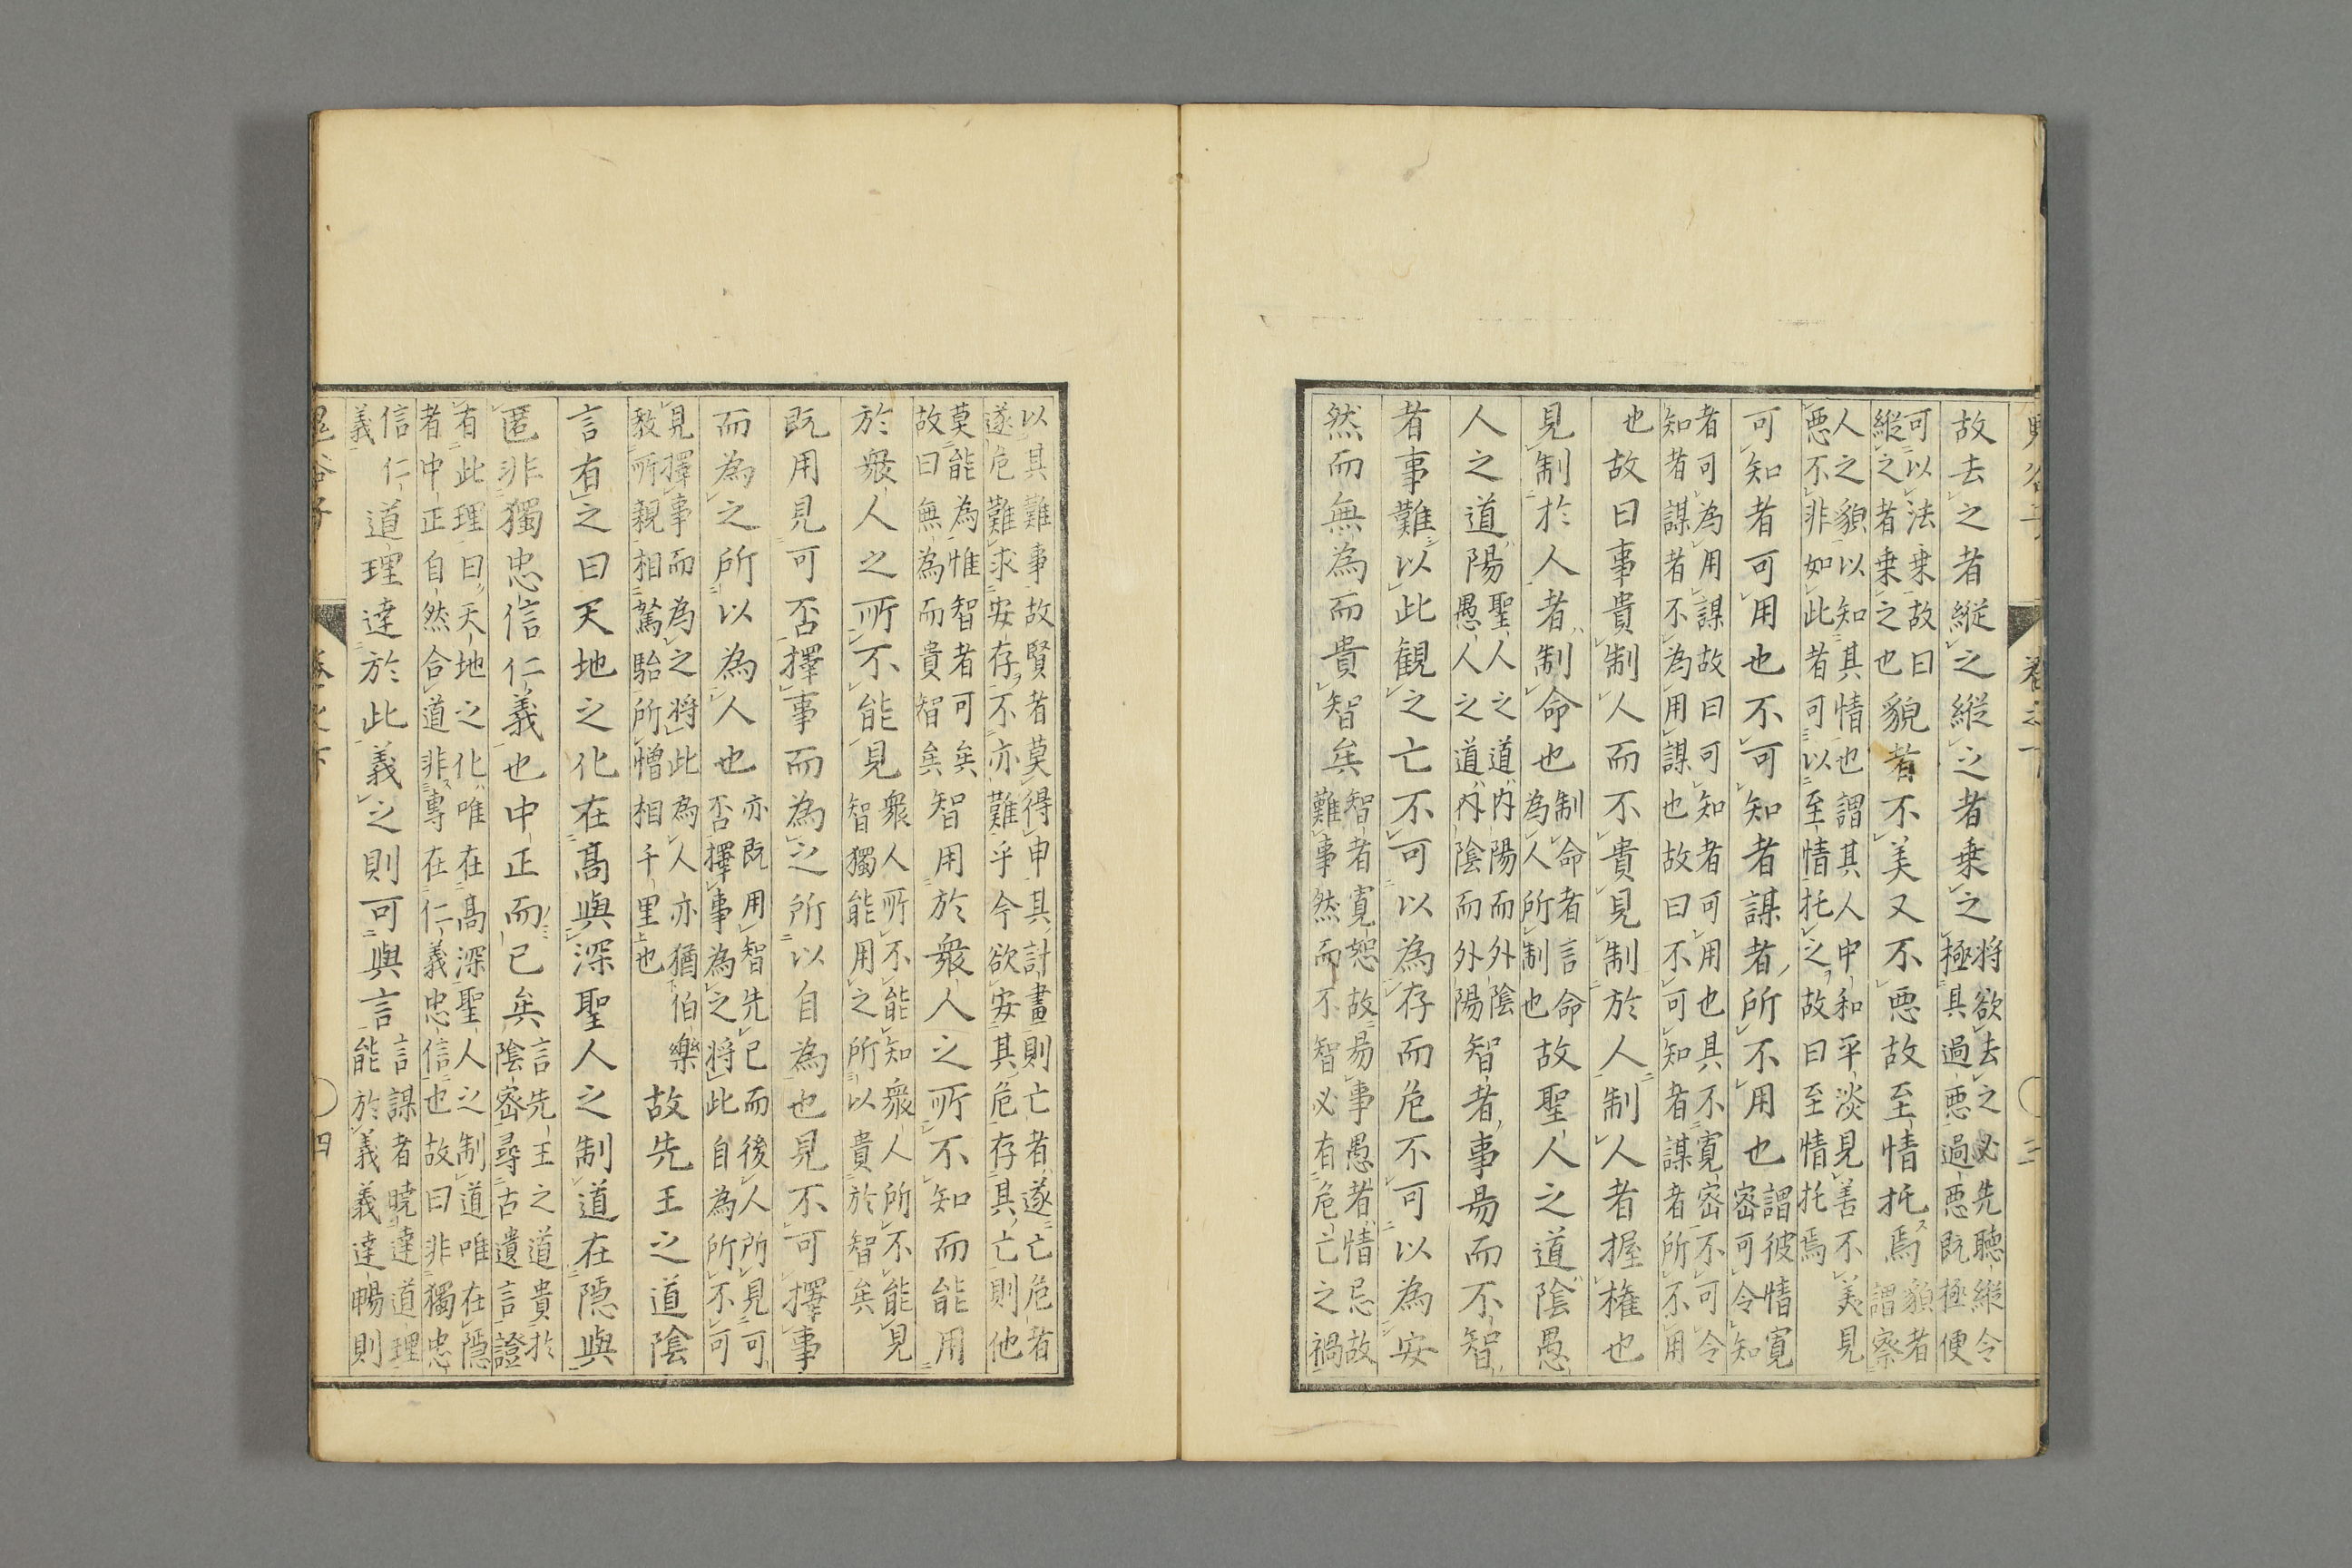 故去之者縱之縱之者乗之將欲去之必先聽縱令
極其過惡過惡既極便
可以法乗故曰
縱之者乗之也貌者不美又不惡故至情托焉貌者
謂察
人之貌以知其情也謂其人中和平淡見善不美見
惡不非如此者可以至情托之故曰至情托焉
可知者可用也不可知者謀者所不用也謂彼情寬
密可令知
者可為用謀故曰可知者可用也其不寬密不可令
知者謀者不為用謀也故曰不可知者謀者所不用
也故曰事貴制人而不貴見制於人制人者握権也
見制於人者制命也制命者言命
為人所制也故聖人之道陰愚
人之道陽聖人之道内陽而外陰
愚人之道内陰而外陽智者事易而不智
者事難以此観之亡不可以為存而危不可以為安
然而無為而貴智矣智者寛恕故易事愚者情忌故
難事然而不智必有危亡之禍
以其難事故賢者莫得申其計畫則亡者遂亡危者
遂危難求安存不亦難乎今欲安其危存其亡則他
莫能為惟智者可矣
故曰無為而貴智矣智用於衆人之所不知而能用
於衆人之所不能見衆人所不能知衆人所不能見
智獨能用之所以貴於智矣
既用見可否擇事而為之所以自為也見不可擇事
而為之所以為人也亦既用智先已而後人所見可
否擇事為之將此自為所不可
見擇事而為之將此為人亦猶伯樂
教所親相駑駘所憎相千里也故先王之道陰
言有之曰天地之化在髙與深聖人之制道在隠與
匿非獨忠信仁義也中正而已矣言先王之道貴於
陰密尋古遺言證
有此理曰天地之化唯在髙深聖人之制道唯在隠
者中正自然合道非專在仁義忠信也故曰非獨忠
信仁
義道理達於此義之則可與言言謀者曉達道理
能於義義達暢則